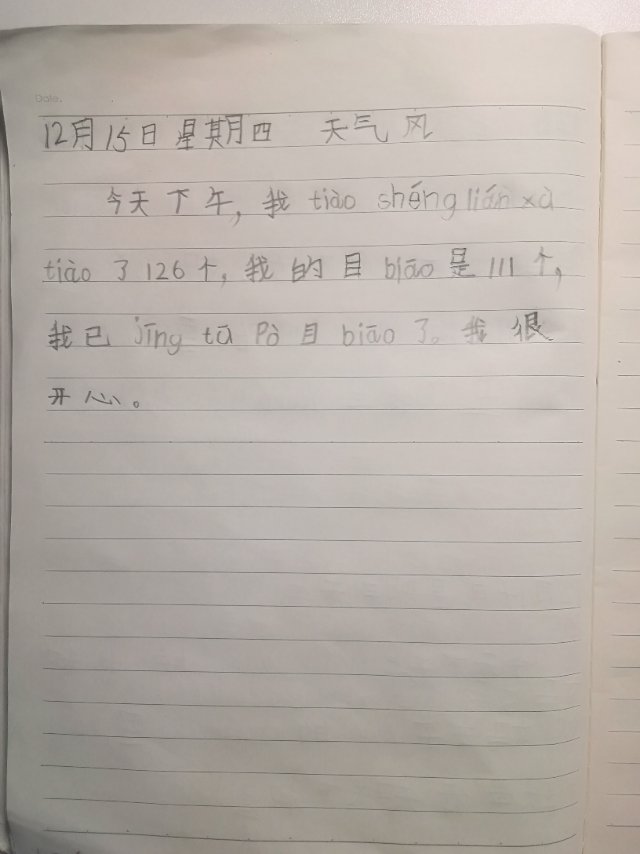 Date.
12月15日 星期四 天气 风
今天下午,我 tiào shéng lián xà
tiào 了 126个,我的目 biāo 是 111个,
我已 jīng tū Pò 目 biāo 了。我很
开心。